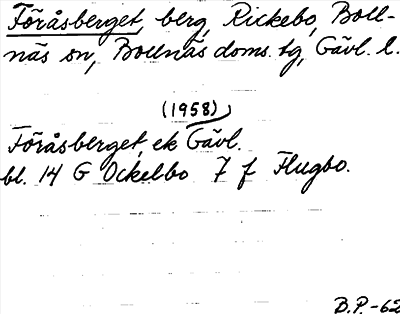 Föråsberget, berg, Rickebo, Boll-
näs sn, Bollnäs doms. tg, Gävl. l.
(1958)
Föråsberget, ek Gävl.
bl. 14 G Ockelbo 7 f Flugbo.
B.P.-62